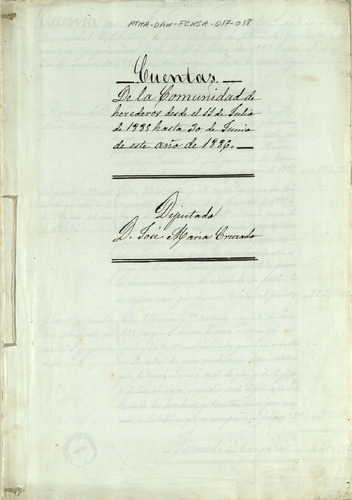 PTMA-DAW-FCMSA-017-018
Cuentas
De la Comunidad de
herederos desde el 11 de Julio
de 1885 hasta 30 de Junio
de este año de 1886.
Diputado
D. José Maria Cruzado